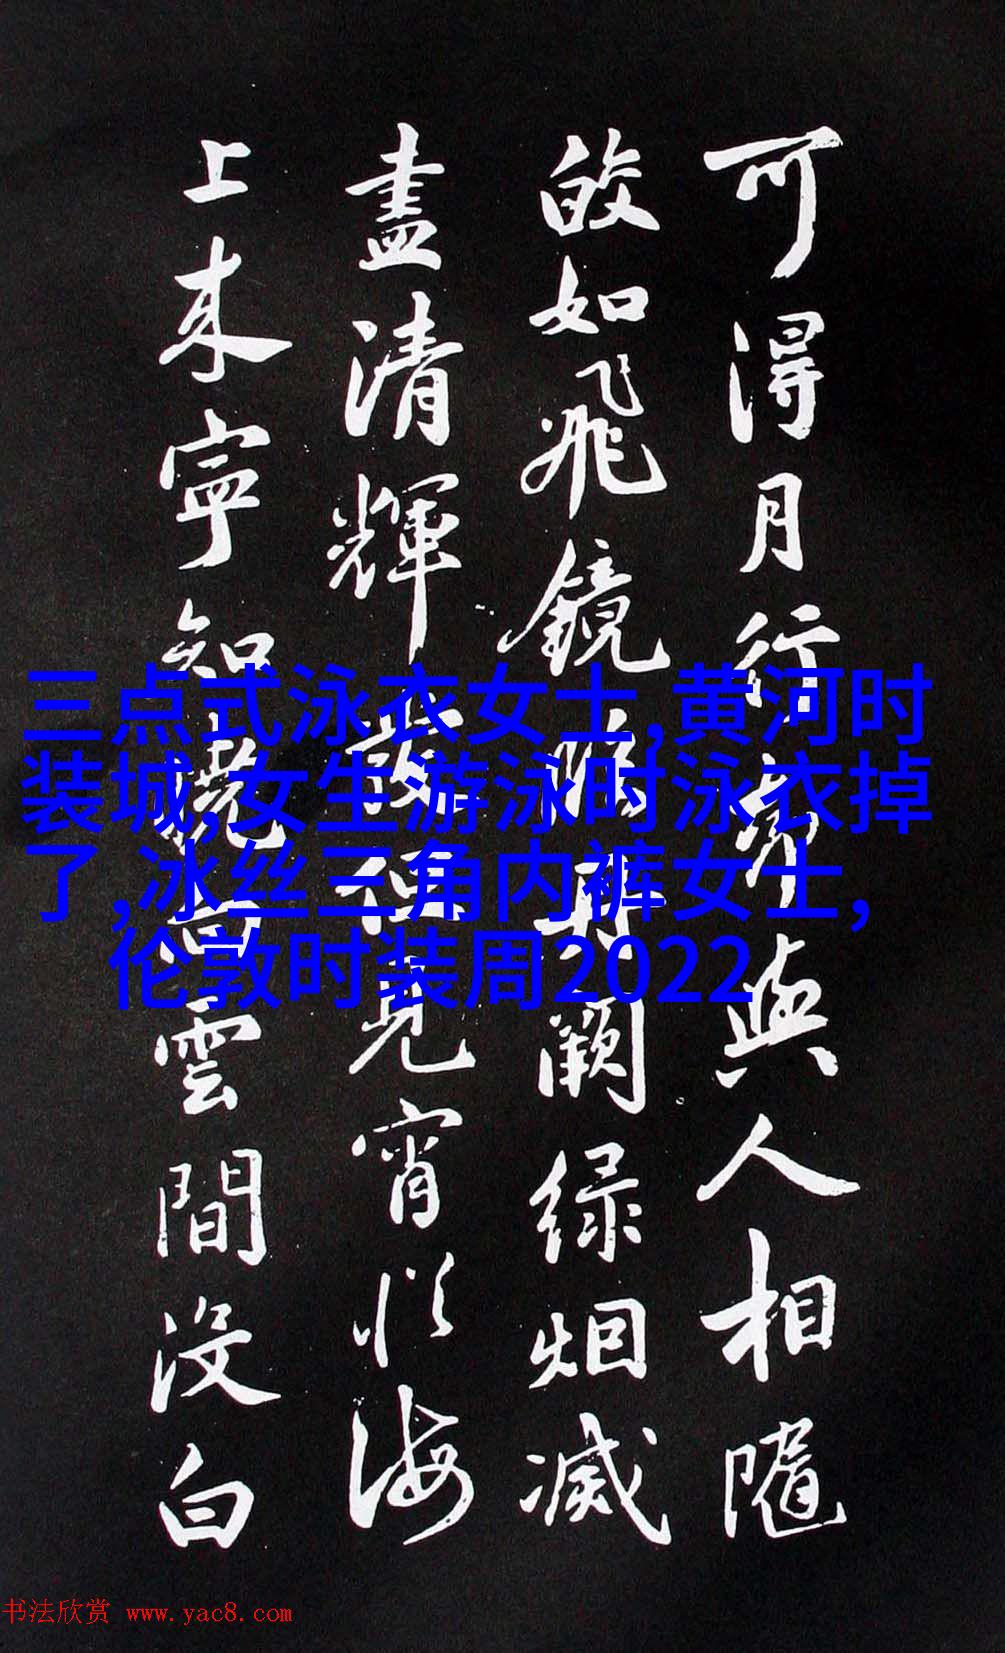 可得月行卻與人相隨
皎如飛鏡臨丹闕綠烟滅
盡清輝發但見宵從海
上来寧知曉向雲間没白
三点式泳衣女士,黄河时
装城,女生游泳时泳衣掉
了,冰丝三角内裤女士,
伦敦时装周2022
书法欣赏 www.yac8.com